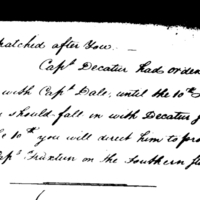 patched after You. —
Capt Decatur had orders
with Capt Dale, until the 10th
should fall in with Decatur
10th you will direct him to pro
Capt Truxtun on the Southern